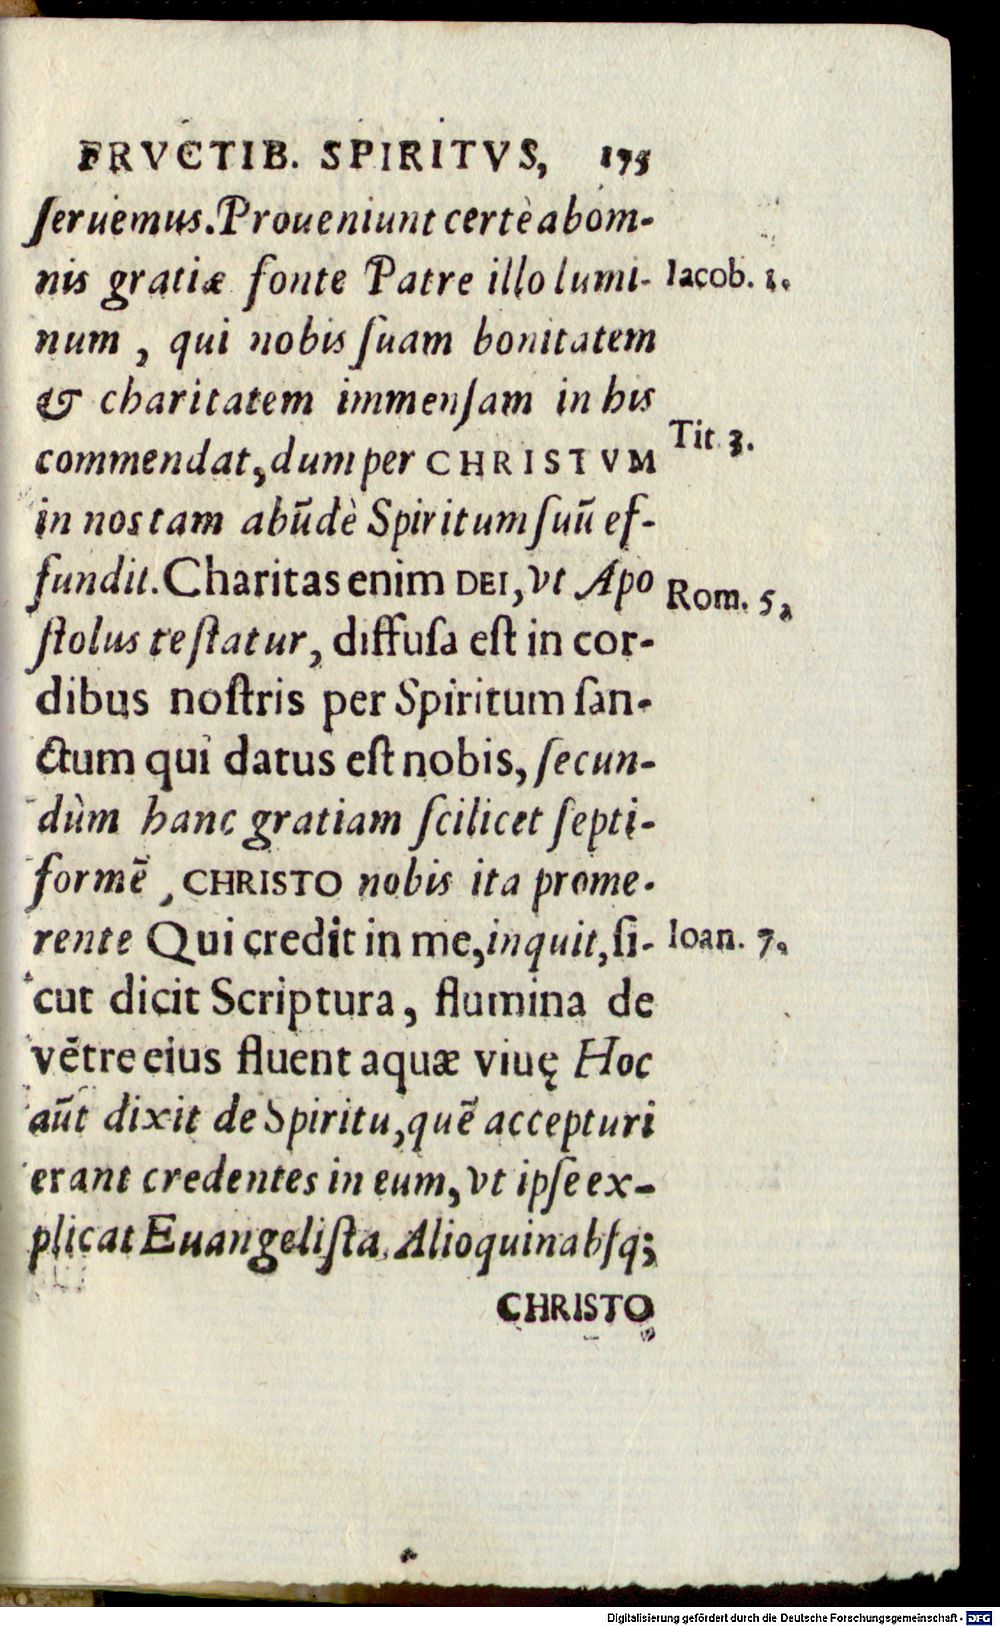 FRVCTIB. SPIRITVS, 175
ſeruemus. Proueniunt certè ab om-
nis gratiæ fonte Patre illo lumi- Iacob. 1.
num, qui nobis ſuam bonitatem
& charitatem immenſam in his
commendat, dum per CHRISTVM Tit. 3.
in nos tam abūdè Spiritum ſuū ef-
fundit. Charitas enim DEI, vt Apo Rom. 5,
ſtolus teſtatur, diffuſa eſt in cor-
dibus noſtris per Spiritum ſan-
ctum qui datus eſt nobis, ſecun-
dùm hanc gratiam ſcilicet ſepti-
formē, CHRISTO nobis ita prome-
rente Qui credit in me, inquit, ſi- Ioan. 7,
cut dicit Scriptura, flumina de
vētre eius fluent aquæ viuę Hoc
aūt dixit de Spiritu, quē accepturi
erant credentes in eum, vt ipſe ex-
plicat Euangeliſta. Alioquin abſq;
CHRISTO
Digitalisierung gefördert durch die Deutsche Forschungsgemeinschaft - DFG